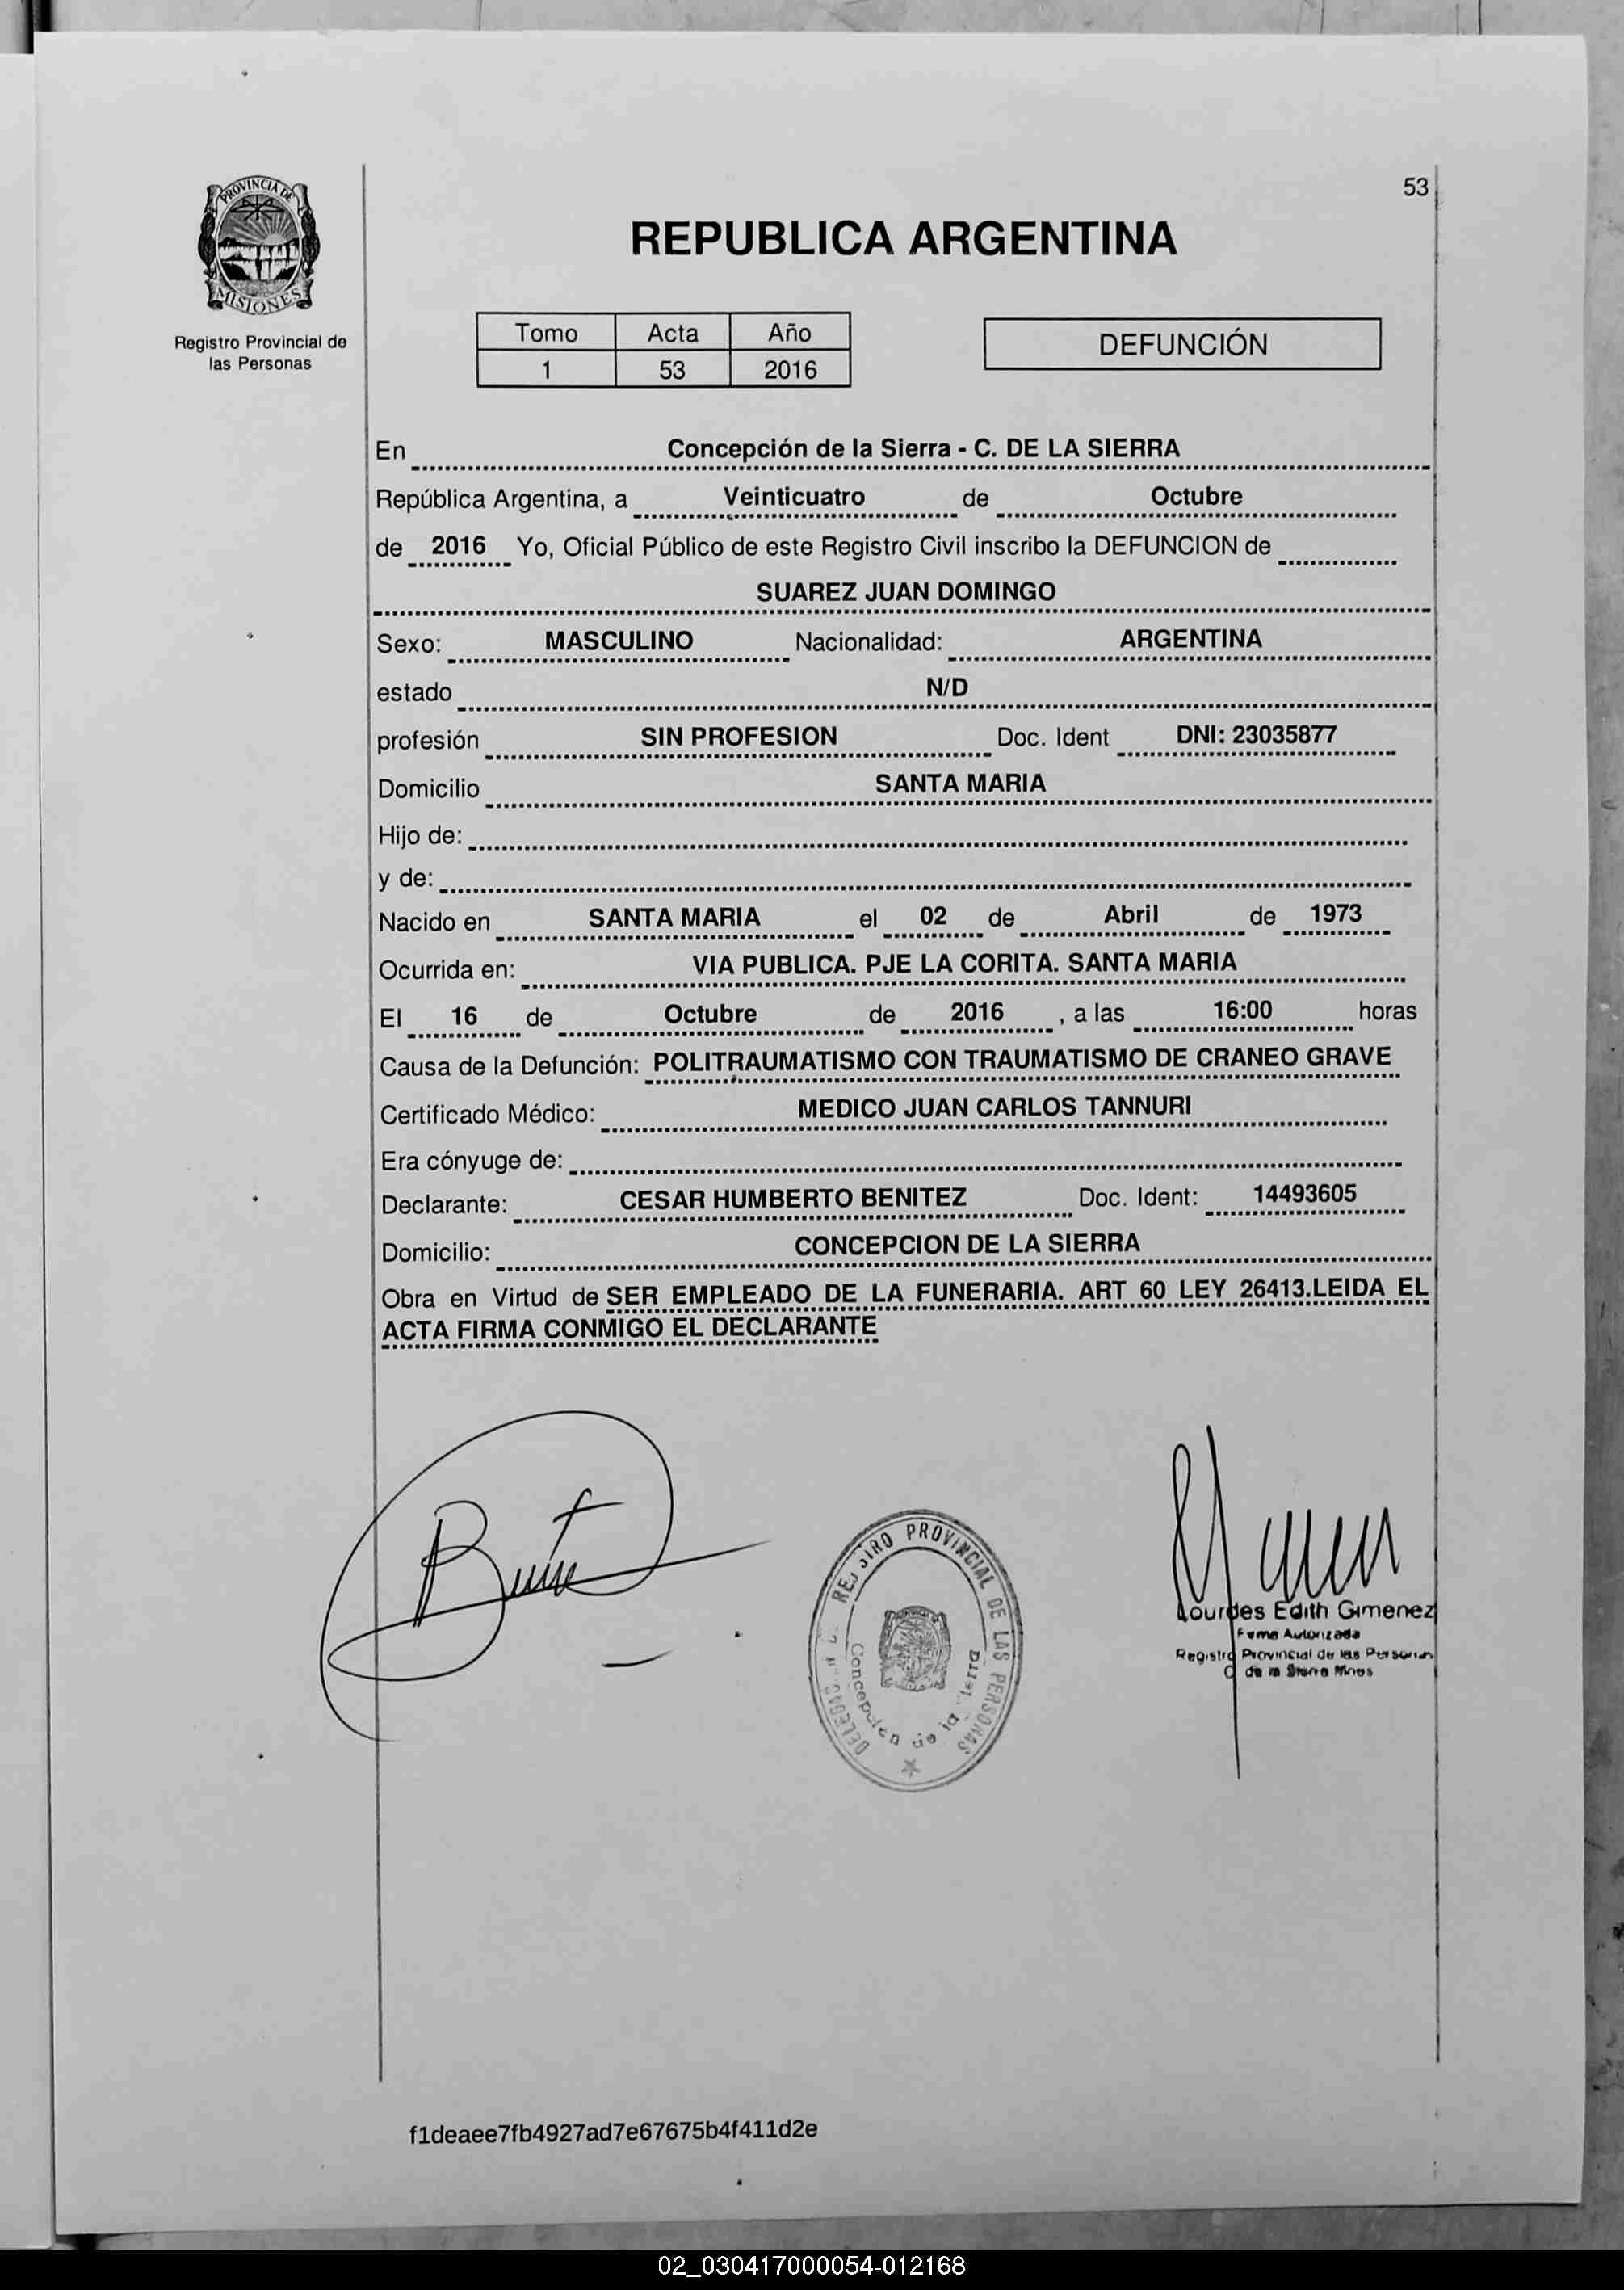 53
PROVINCIA DE
MISIONES
Registro Provincial de
las Personas
REPUBLICA ARGENTINA
Tomo Acta Año
1 53 2016
DEFUNCIÓN
En Concepción de la Sierra - C. DE LA SIERRA
República Argentina, a Veinticuatro de Octubre
de 2016 Yo, Oficial Público de este Registro Civil inscribo la DEFUNCION de
SUAREZ JUAN DOMINGO
Sexo: MASCULINO Nacionalidad: ARGENTINA
estado N/D
profesión SIN PROFESION Doc. Ident DNI: 23035877
Domicilio SANTA MARIA
Hijo de:
y de:
Nacido en SANTA MARIA el 02 de Abril de 1973
Ocurrida en: VIA PUBLICA. PJE LA CORITA. SANTA MARIA
El 16 de Octubre de 2016 , a las 16:00 horas
Causa de la Defunción: POLITRAUMATISMO CON TRAUMATISMO DE CRANEO GRAVE
Certificado Médico: MEDICO JUAN CARLOS TANNURI
Era cónyuge de:
Declarante: CESAR HUMBERTO BENITEZ Doc. Ident: 14493605
Domicilio: CONCEPCION DE LA SIERRA
Obra en Virtud de SER EMPLEADO DE LA FUNERARIA. ART 60 LEY 26413.LEIDA EL
ACTA FIRMA CONMIGO EL DECLARANTE
PROVINCIAL DE LAS PERSONAS
Concepcion de la
Lourdes Edith Gimenez
Firma Autorizada
Registro Provincial de las Personas
C de la Sierra Mnes
f1deaee7fb4927ad7e67675b4f411d2e
02_030417000054-012168